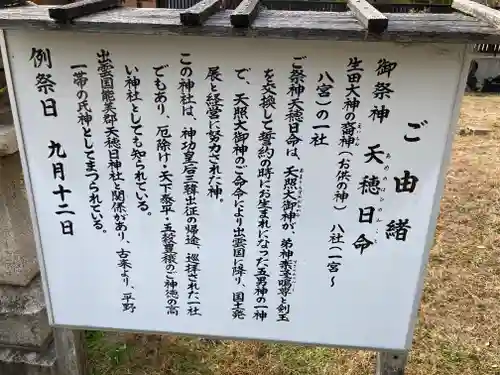 ご由緒
御祭神 天穂日命
あめのほひのみこと
生田大神の裔神（お供の神） 八社（一宮～
えいしん
八宮）の一社
ご祭神天穂日命は、天照大御神が、弟神素戔嗚尊と剣玉
を交換して誓約の時にお生まれになった五男神の一神
で、天照大御神のご命令により出雲国に降り、国土発
展と経営に努力された神。
この神社は、神功皇后三韓出征の帰途、巡拝された一社
でもあり、厄除け・天下泰平・五穀豊穣のご神徳の高
い神社としても知られている。
出雲国能美郡天穂日神社と関係があり、古来より、平野
一帯の氏神としてまつられている。
例祭日 九月十二日